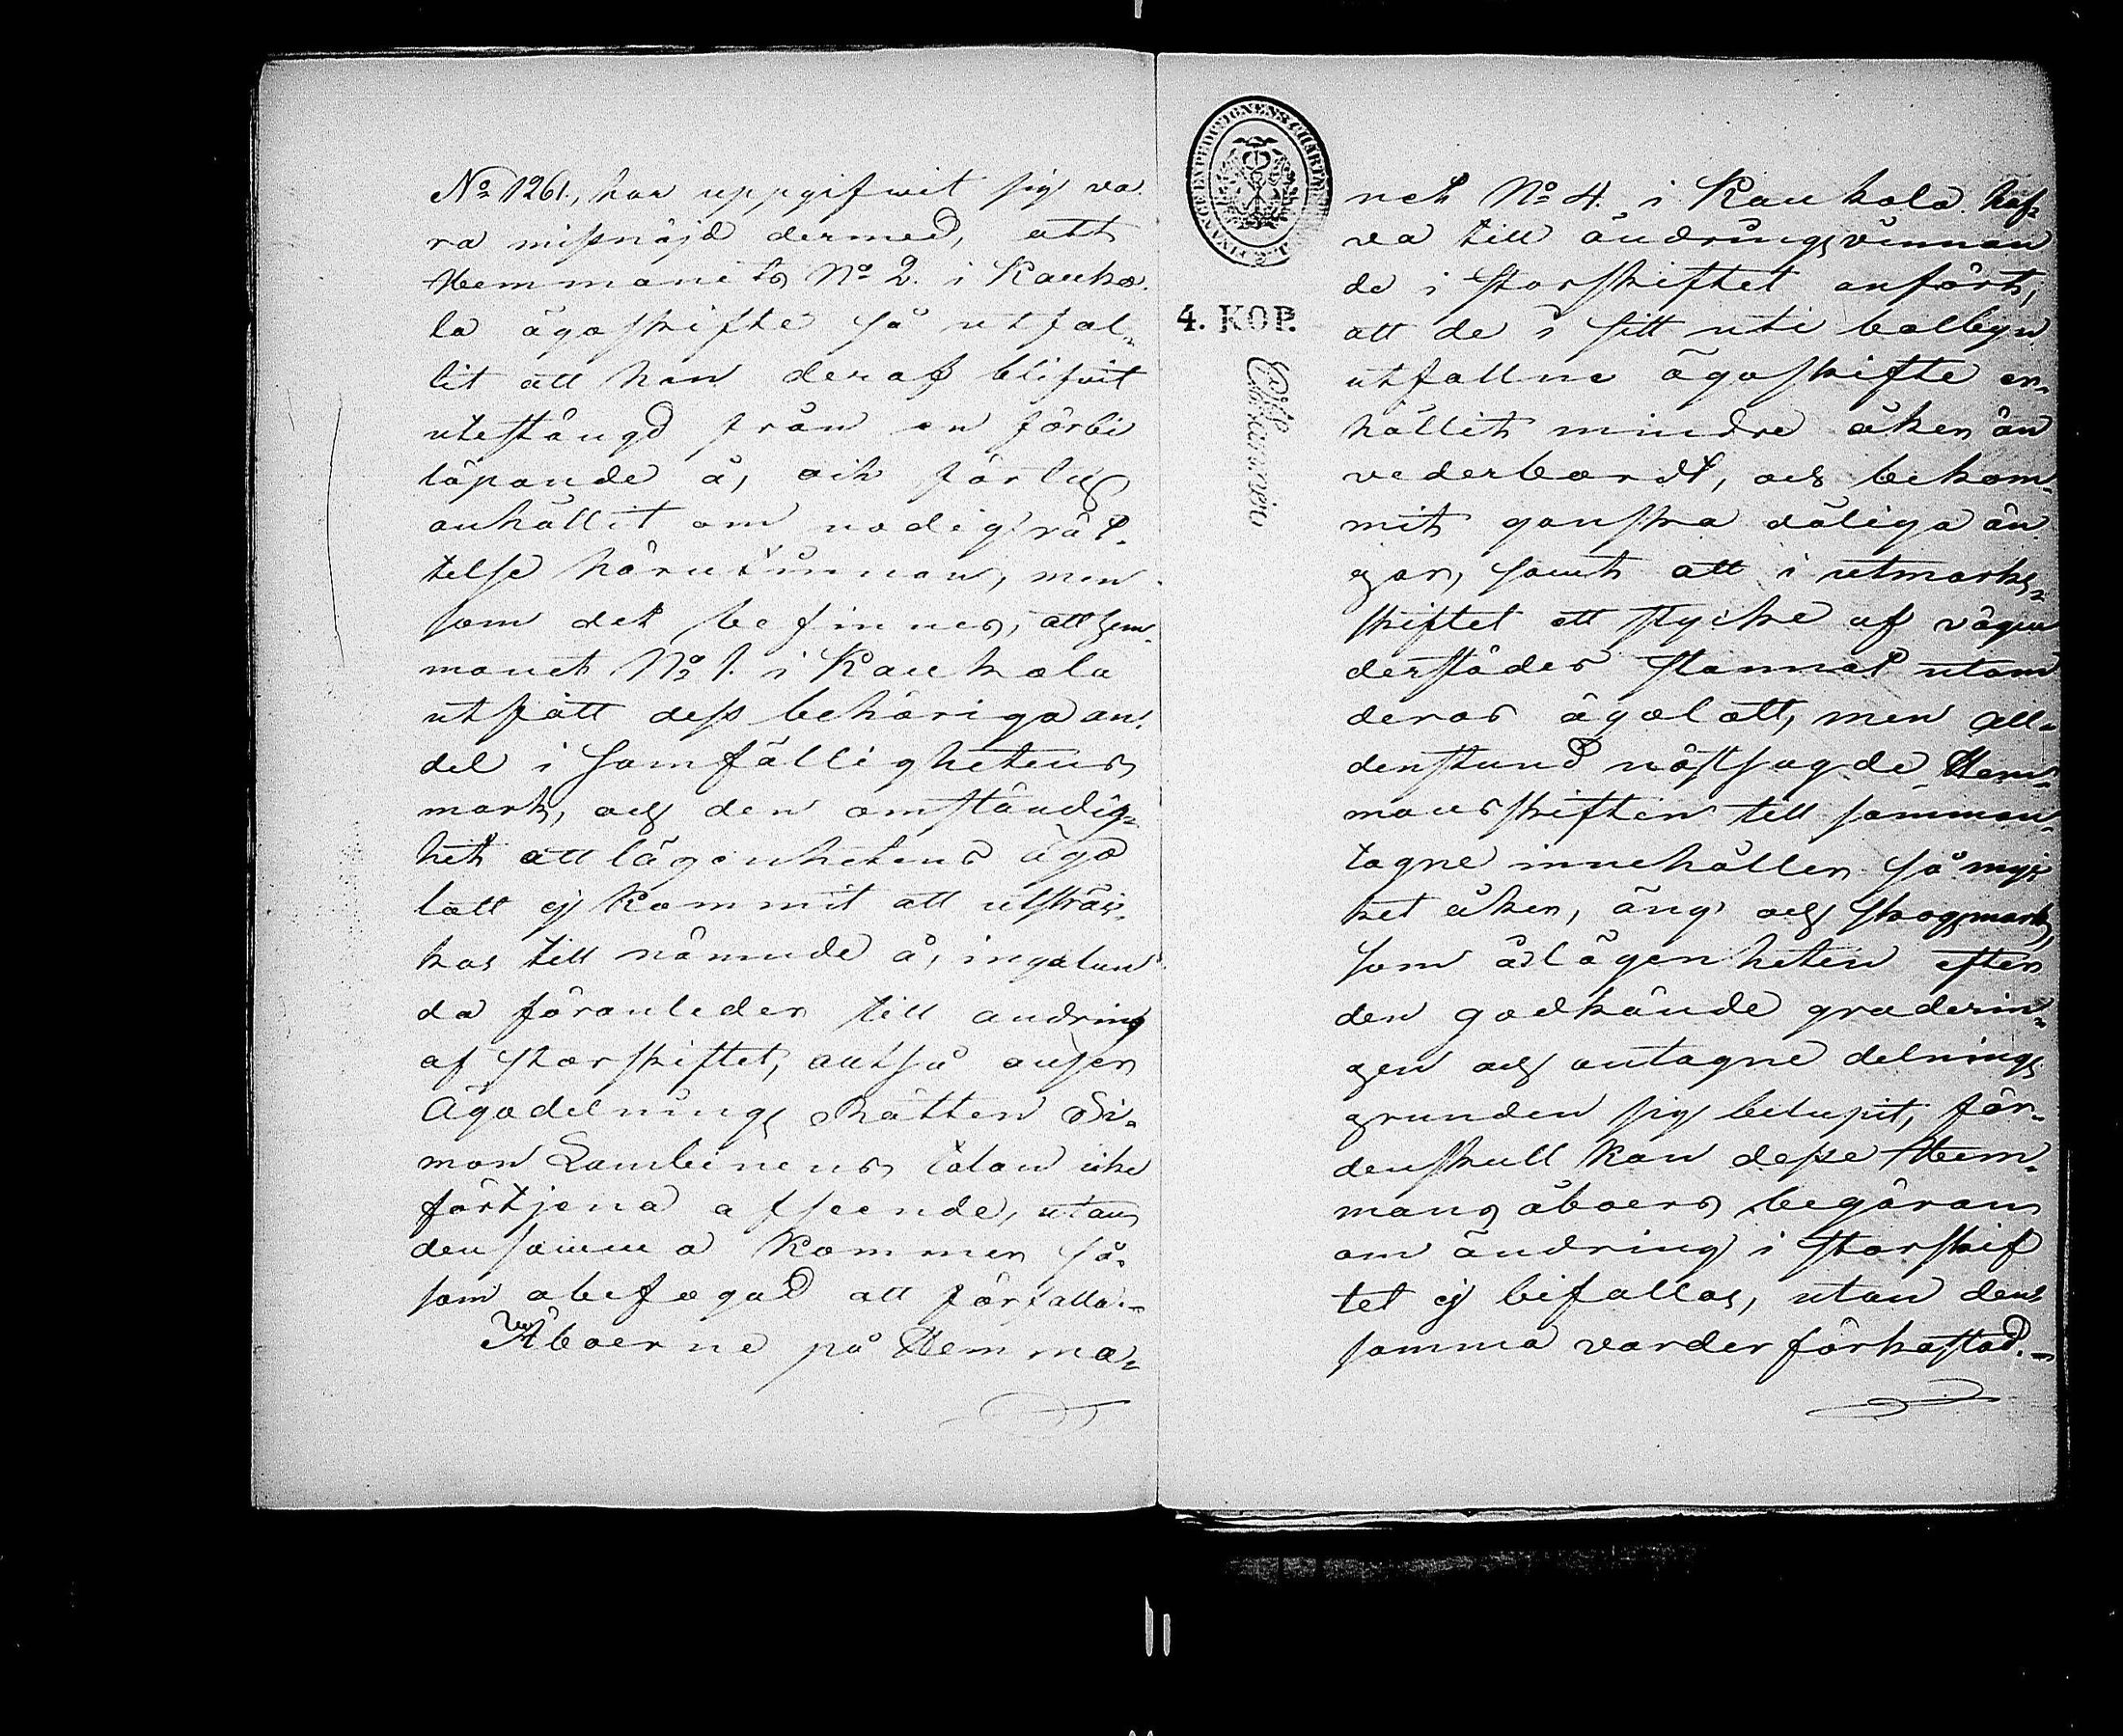 No 1261., har uppgifwit sig va
ra missnöjd dermed, att
Hemmanets No 2. i Kauko
la ägoskifte så utfal-
lit att han deraf blifvit
utestängd från en förbi
löpande å, och förty
anhållit om nödig rät-
telse härutinnan, men
som det befinnes, att hem
manet No 1. i Kaukola
utfått dess behöriga an-
del i Samfällighetens
mark, och den omständig-
het att lägenhetens ägo
lott ej kommit att utsträc-
kas till nämnde å, ingalun
da föranleder till ändring
af storskiftet, alltså anser
Ägodelnings Rätten Si-
mon Lambinens talan icke
förtjena afseende, utan
densamma kommer så-
som obefogad att förfalla.-
Åboerne på Hemma-
4. KOP.
net No 4. i Kaukola haf-
va till ändrings vinnan
de i Storskiftet anfört,
att de i sitt uti bolbyn
utfallne ägoskifte er-
hållit mindre åker än
vederbordt, och bekom-
mit ganska dåliga än
gar, samt att i utmarks-
skiftet ett stycke af vägen
derstädes stannat utom
deras ägolott, men all-
denstund nästsagde Hem-
mansskiften till samman-
tagne innehåller så myc
ket åker, äng och skogsmark,
som å lägenheten efter
den godkände graderin-
gen och antagne delnings
grunden sig belupit, för-
denskull kan desse Hem-
mans åboers begäran
om ändring i storskif
tet ej bifallas, utan den
samma varder förkastad.-